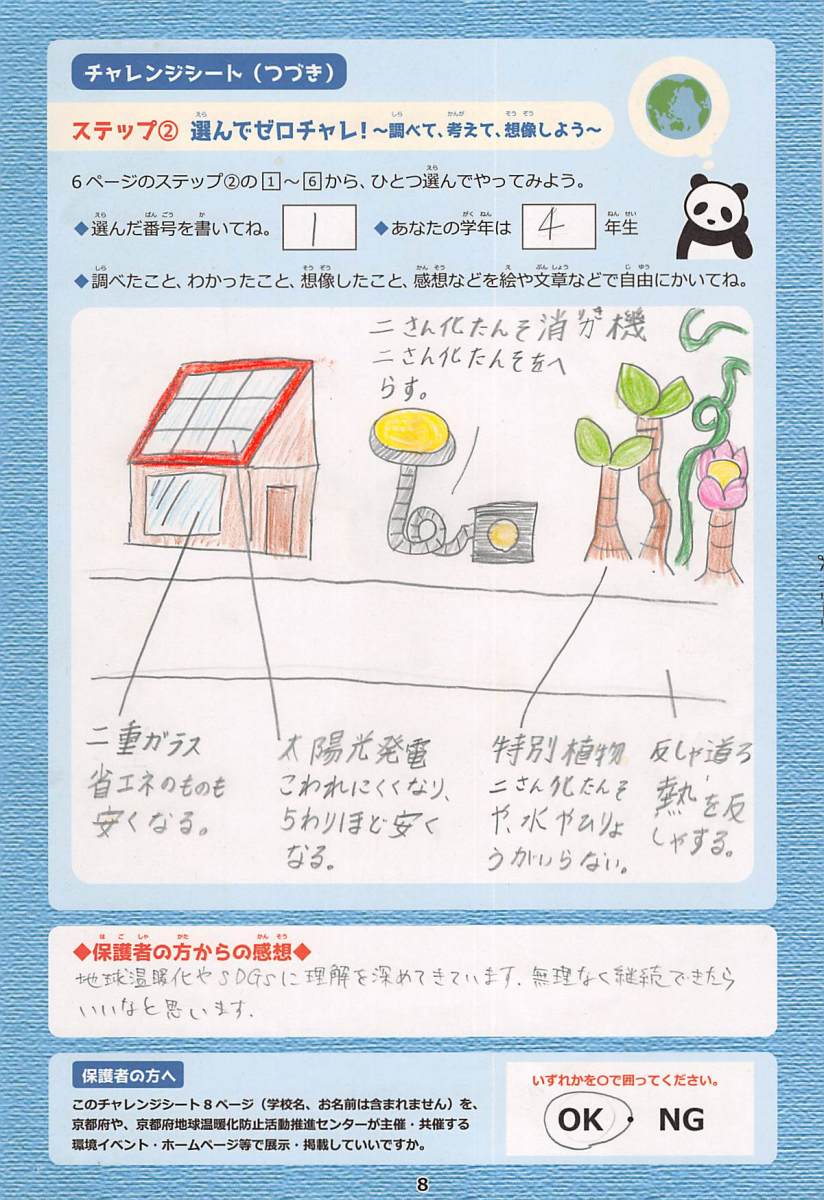 チャレンジシート（つづき）
ステップ② 選んでゼロチャレ！～調べて、考えて、想像しよう～
6ページのステップ②の1～6から、ひとつ選んでやってみよう。
◆選んだ番号を書いてね。 1 ◆あなたの学年は 4 年生
◆調べたこと、わかったこと、想像したこと、感想などを絵や文章などで自由にかいてね。
二さん化たんそ消がき機
二さん化たんそをへ
らす。
二重ガラス
省エネのものも
安くなる。
太陽光発電
こわれにくくなり、
5わりほど安く
なる。
特別植物
二さん化たんそ
や、水やひりょ
うがいらない。
反しゃ道ろ
熱を反
しゃする。
◆保護者の方からの感想◆
地球温暖化やSDGsに理解を深めてきています。無理なく継続できたら
いいなと思います。
保護者の方へ
このチャレンジシート8ページ（学校名、お名前は含まれません）を、
京都府や、京都府地球温暖化防止活動推進センターが主催・共催する
環境イベント・ホームページ等で展示・掲載していいですか。
いずれかを○で囲ってください。
OK・NG
8